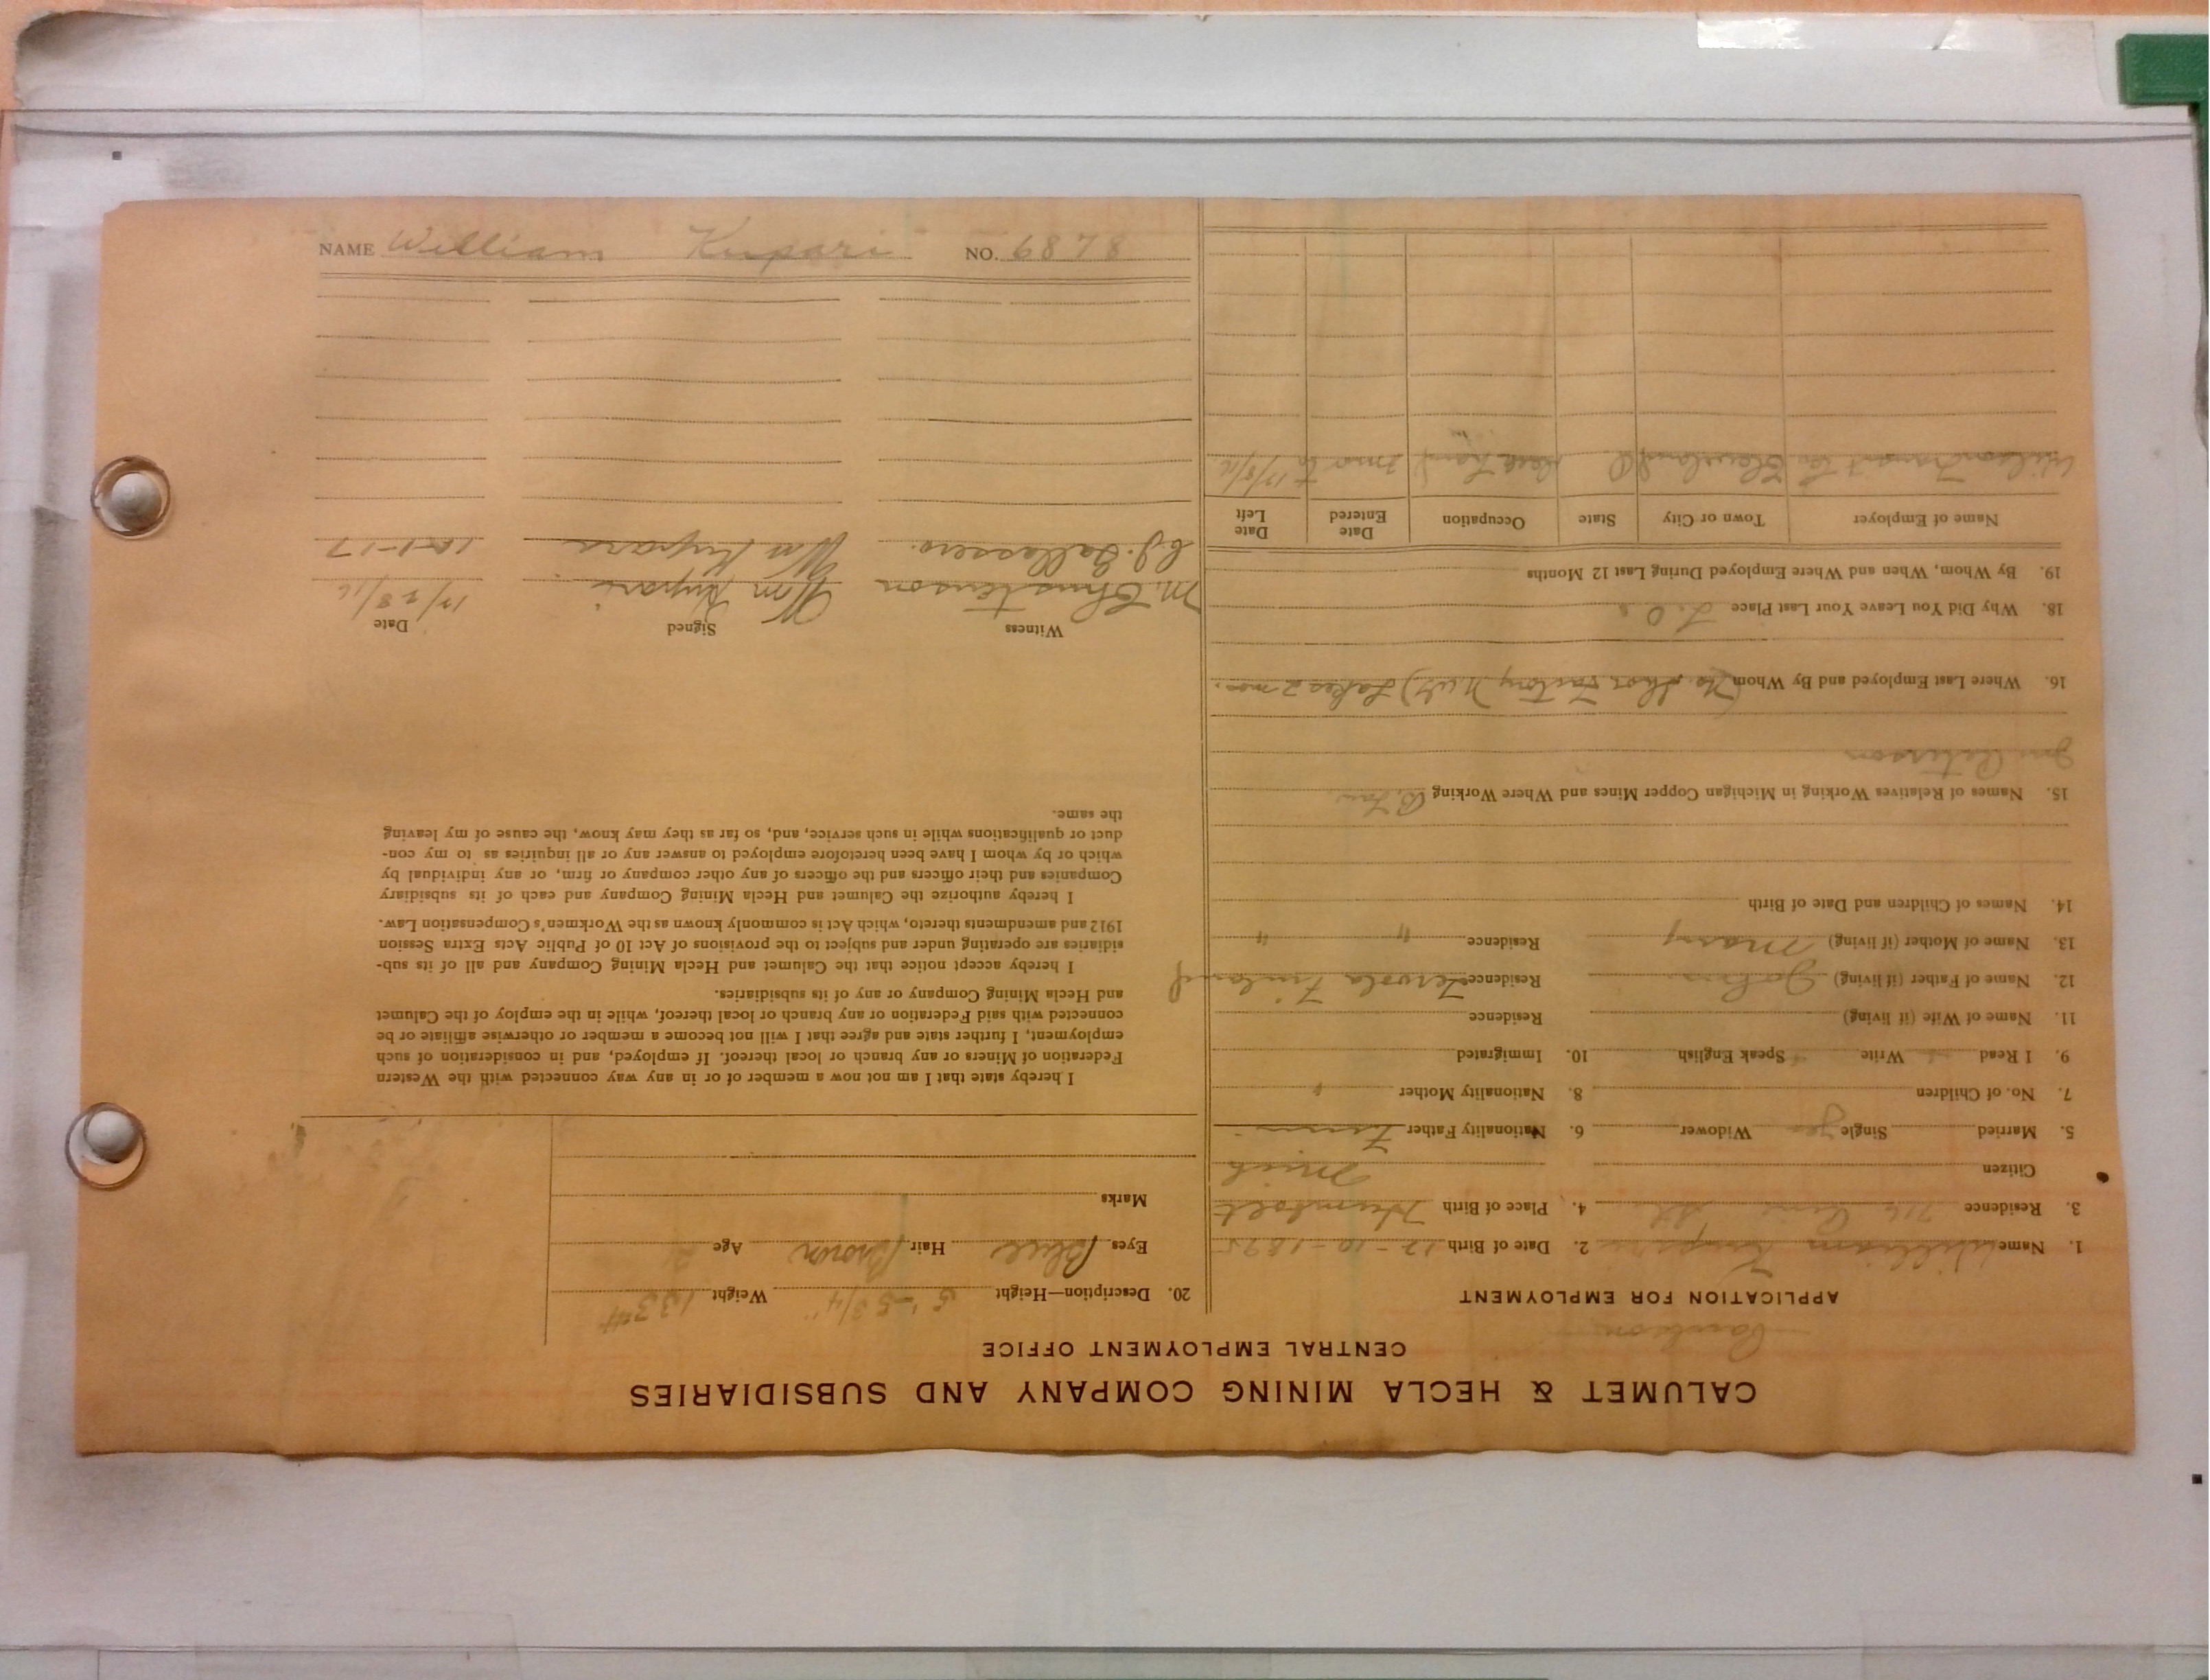 NAME William Kupari NO. 6878
CALUMET & HECLA MINING COMPANY AND SUBSIDIARIES
CENTRAL EMPLOYMENT OFFICE
APPLICATION FOR EMPLOYMENT
1. Name William Kupari 2. Date of Birth 12-10-1895
3. Residence 716 Pine St. 4. Place of Birth Humbolt
Citizen Mich
5. Married Single yes Widower 6. Nationality Father Finn
7. No. of Children 8. Nationality Mother "
9. I Read Write Speak English 10. Immigrated
11. Name of Wife (if living) Residence
12. Name of Father (if living) John Residence Tervola Finland
13. Name of Mother (if living) Mary Residence " "
14. Names of Children and Date of Birth
15. Names of Relatives Working in Michigan Copper Mines and Where Working B. Law
Peterson
16. Where Last Employed and By Whom Lakes 2 mos.
18. Why Did You Leave Your Last Place
19. By Whom, When and Where Employed During Last 12 Months
Name of Employer Town or City State Occupation Date Entered Date Left
Wilson Transit Co Cleveland O Deck hand
20. Description—Height 5'-5 3/4" Weight 133#
Eyes Blue Hair Brown Age 21
Marks
I hereby state that I am not now a member of or in any way connected with the Western
Federation of Miners or any branch or local thereof. If employed, and in consideration of such
employment, I further state and agree that I will not become a member or otherwise affiliate or be
connected with said Federation or any branch or local thereof, while in the employ of the Calumet
and Hecla Mining Company or any of its subsidiaries.
I hereby accept notice that the Calumet and Hecla Mining Company and all of its sub-
sidiaries are operating under and subject to the provisions of Act 10 of Public Acts Extra Session
1912 and amendments thereto, which Act is commonly known as the Workmen's Compensation Law.
I hereby authorize the Calumet and Hecla Mining Company and each of its subsidiary
Companies and their officers and the officers of any other company or firm, or any individual by
which or by whom I have been heretofore employed to answer any or all inquiries as to my con-
duct or qualifications while in such service, and, so far as they may know, the cause of my leaving
the same.
Witness Signed Date
M. Christenson Wm Kupari 12/28/16
Wm Kupari 10-1-17